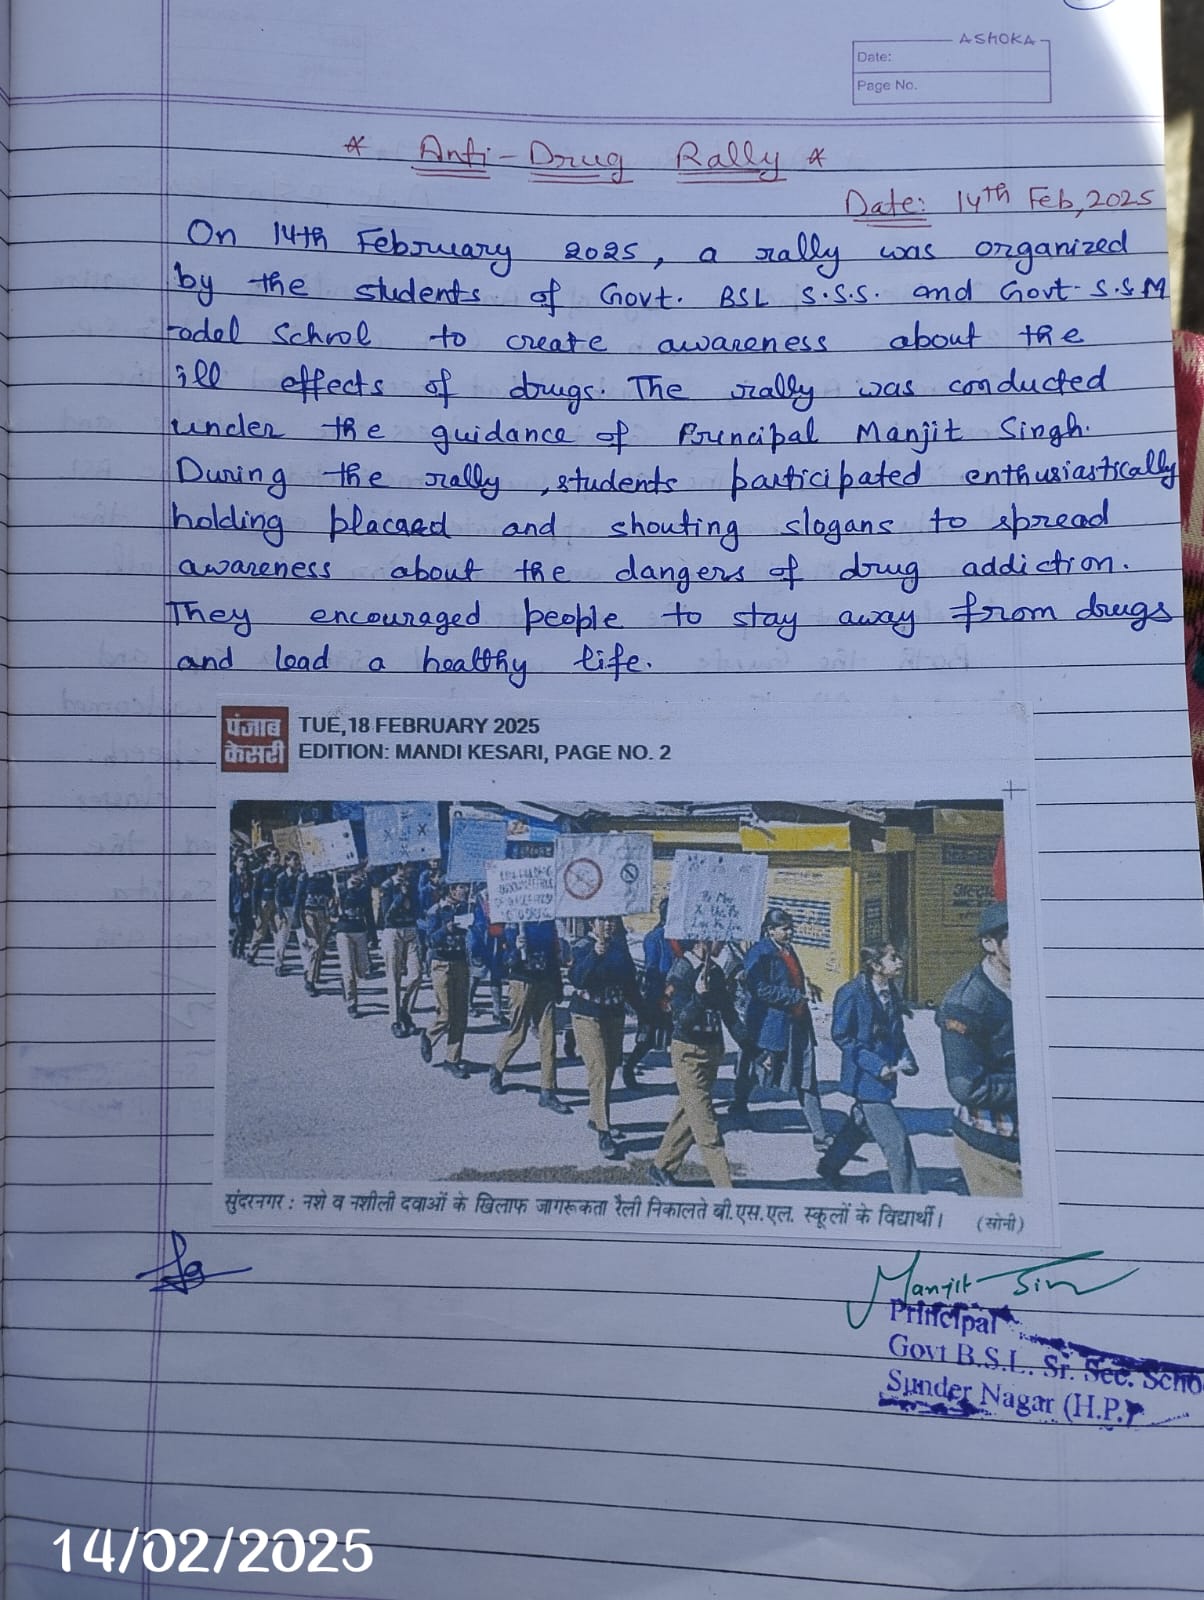 ASHOKA
Date:
Page No.
* Anti-Drug Rally *
Date: 14th Feb, 2025
On 14th February 2025, a rally was organized
by the students of Govt. BSL S.S.S. and Govt. S.S M
odel School to create awareness about the
ill effects of drugs. The rally was conducted
under the guidance of Principal Manjit Singh.
During the rally, students participated enthusiastically
holding placaed and shouting slogans to spread
awareness about the dangers of drug addiction.
They encouraged people to stay away from drugs
and lead a healthy life.
पंजाब
केसरी
TUE,18 FEBRUARY 2025
EDITION: MANDI KESARI, PAGE NO. 2
सुंदरनगर : नशे व नशीली दवाओं के खिलाफ जागरूकता रैली निकालते बी.एस.एल. स्कूलों के विद्यार्थी। (सोनी)
Manjit Sin
Principal
Govt B.S.L. Sr. Sec. Scho
Sunder Nagar (H.P.)
14/02/2025